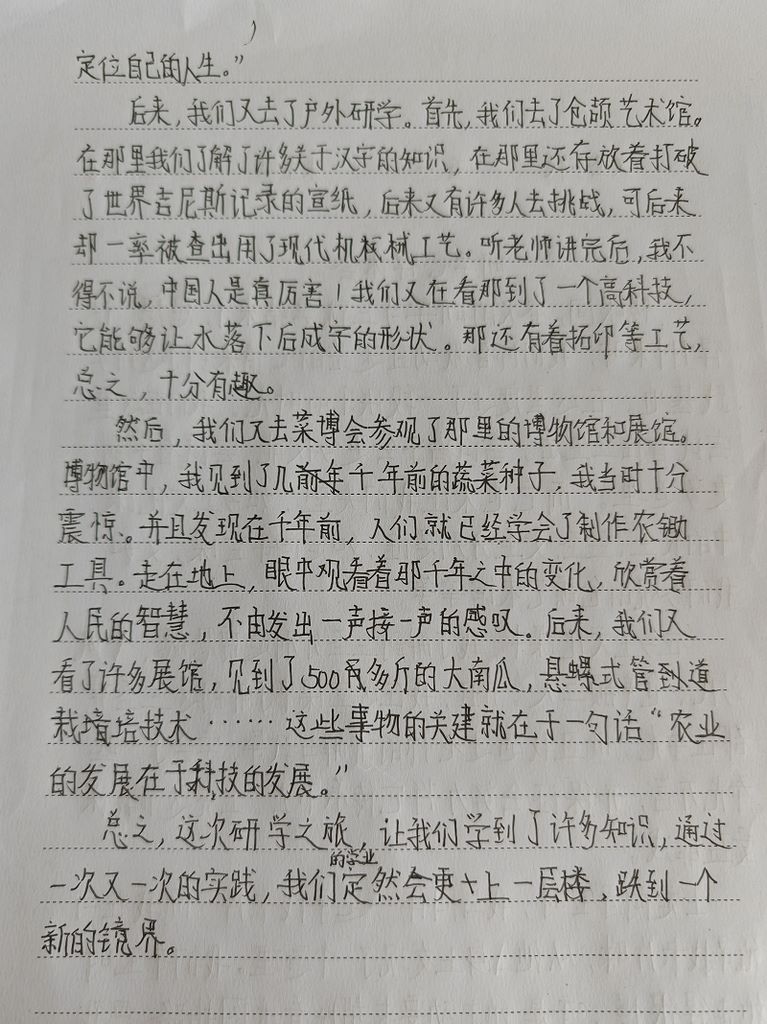 定位自己的人生。”
后来，我们又去了户外研学。首先，我们去了仓颉艺术馆。
在那里我们了解了许多关于汉字的知识，在那里还存放着打破
了世界吉尼斯记录的宣纸，后来又有许多人去挑战，可后来
却一率被查出用了现代机械工艺。听老师讲完后，我不
得不说，中国人是真厉害！我们又在看那到了一个高科技，
它能够让水落下后成字的形状。那还有着拓印等工艺，
总之，十分有趣。
然后，我们又去菜博会参观了那里的博物馆和展馆。
博物馆中，我见到了几千年前的蔬菜种子，我当时十分
震惊。并且发现在千年前，人们就已经学会了制作农锄
工具。走在地上，眼中观看着那千年之中的变化，欣赏着
人民的智慧，不由发出一声接一声的感叹。后来，我们又
看了许多展馆，见到了500多斤的大南瓜，悬螺式管道
栽培技术……这些事物的关建就在于一句话“农业
的发展在于科技的发展。”
总之，这次研学之旅，让我们学到了许多知识，通过
一次又一次的实践，我们的学业定然会更上一层楼，跌到一个
新的镜界。